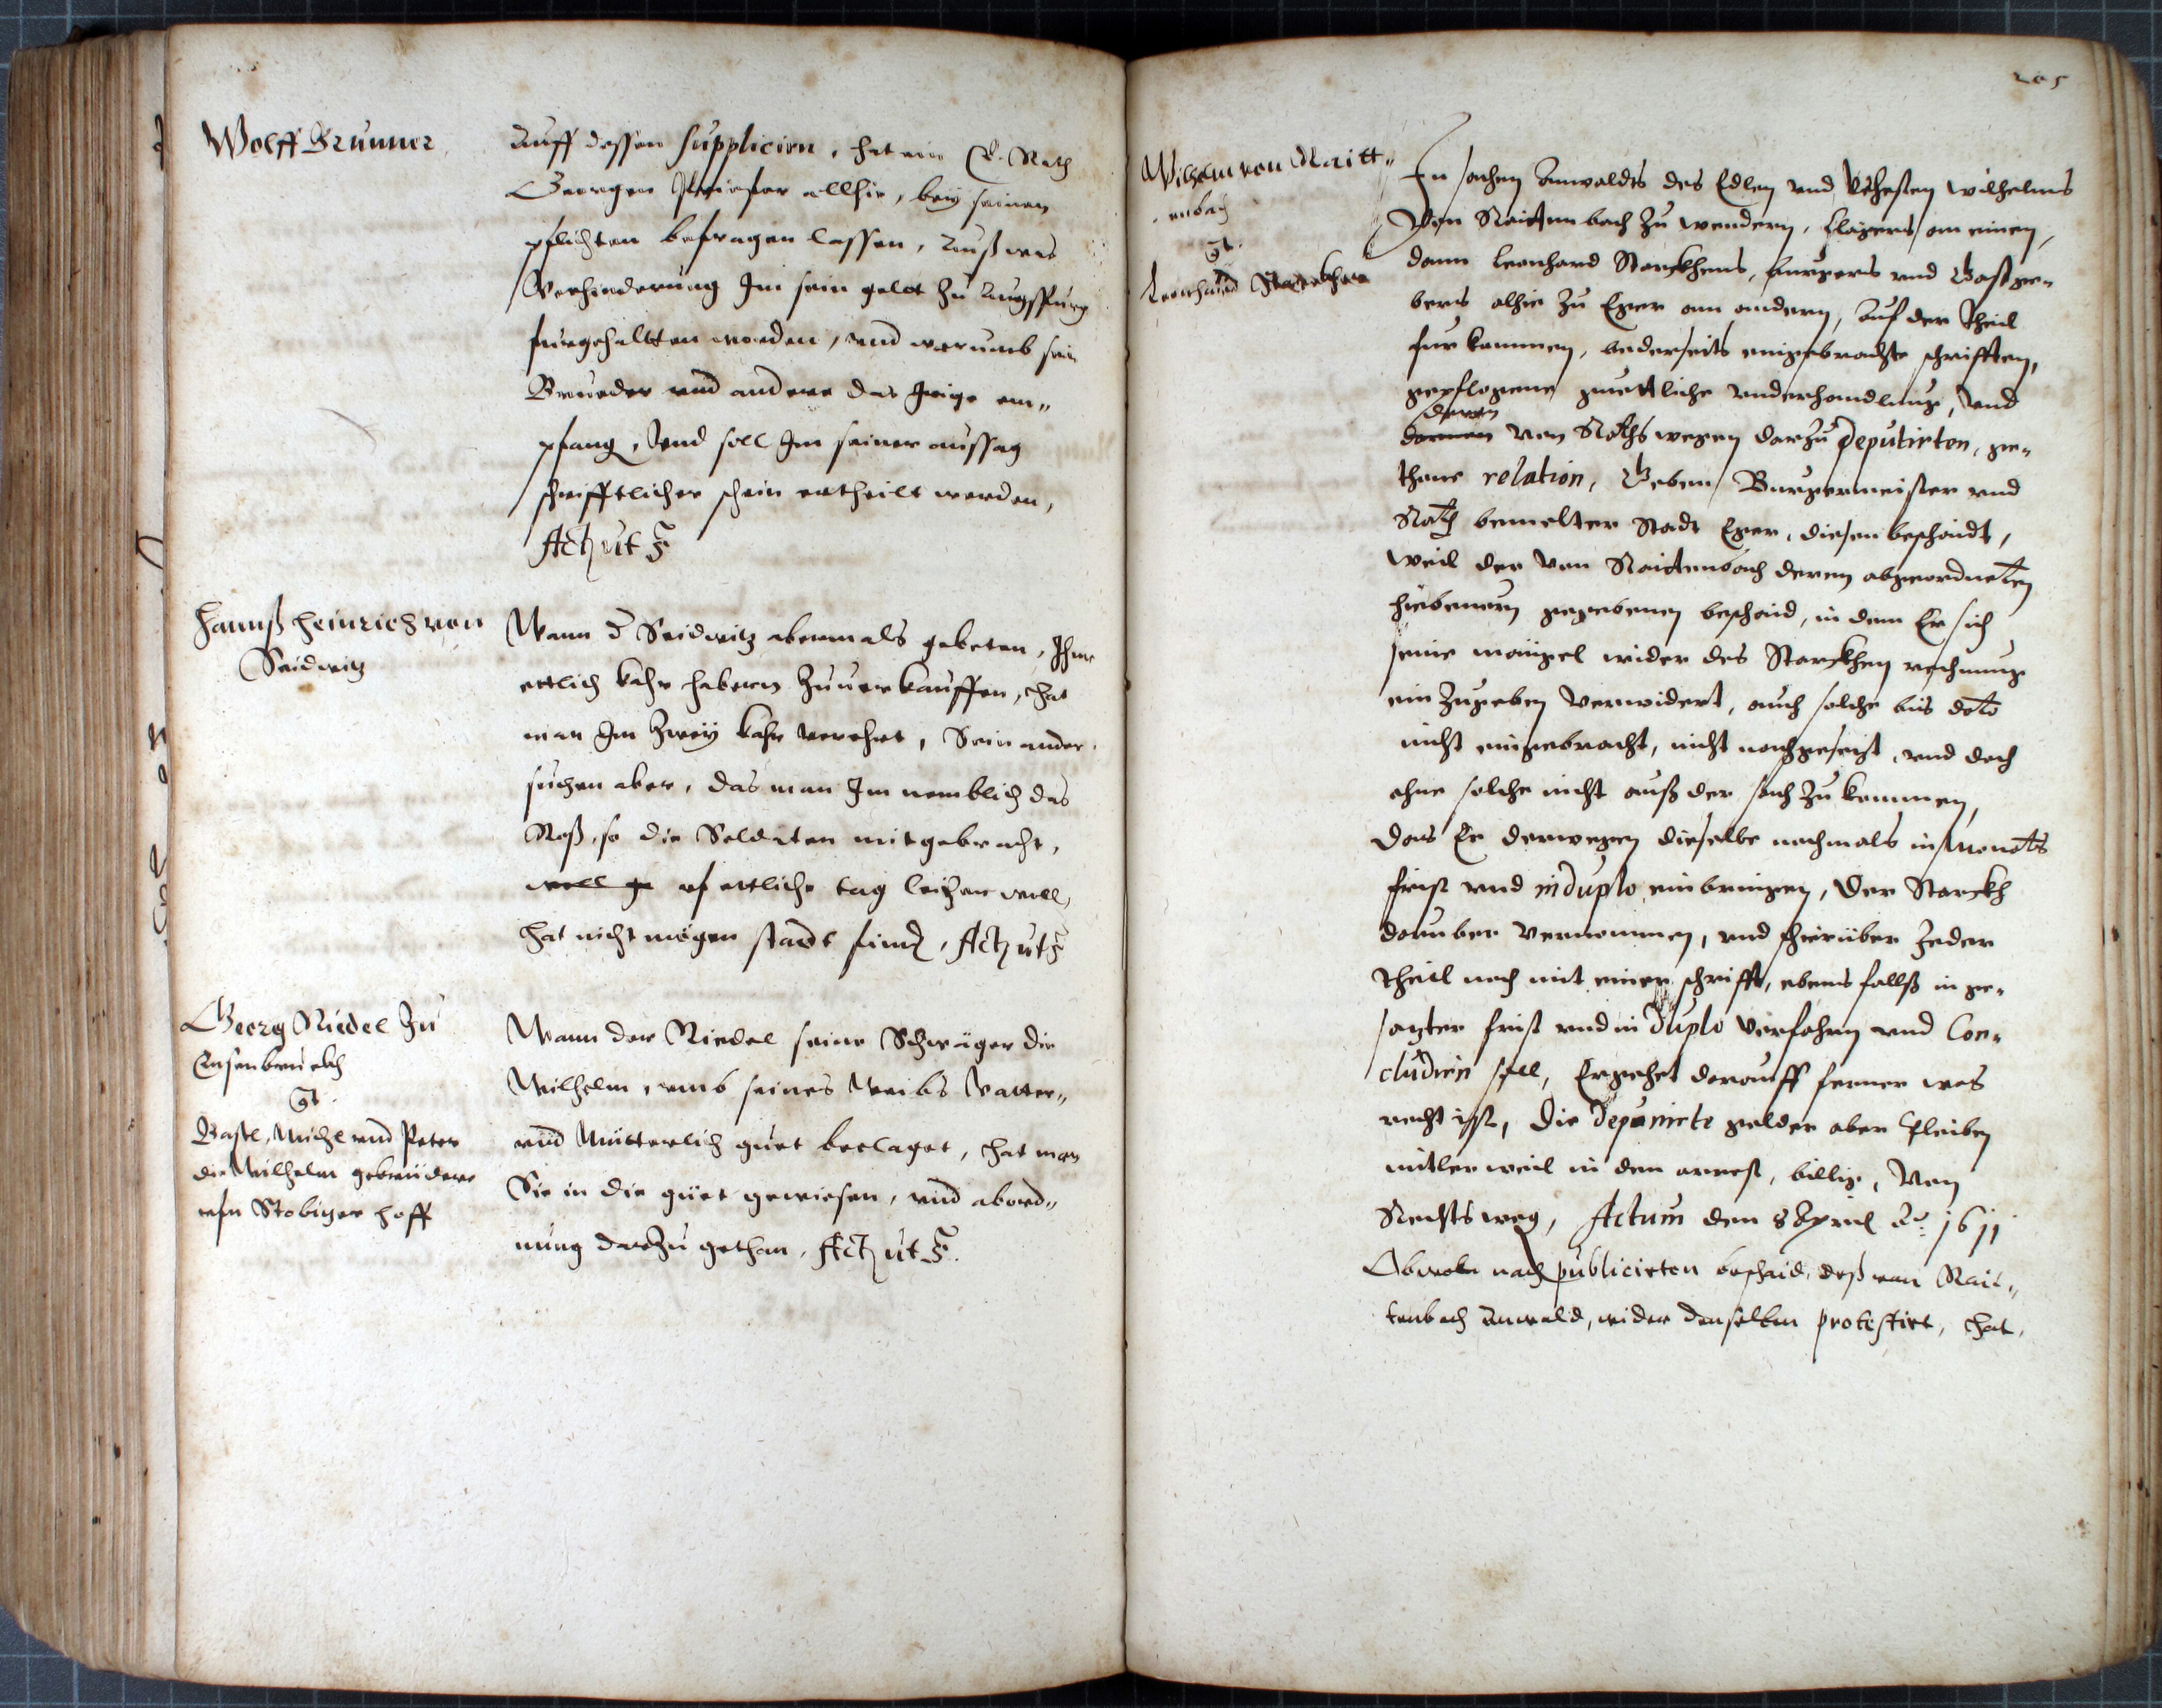 Wolff Brunner
Auff dessen supplicirn, hat ein E. Rath
Georgen allhie, bey seinen
pflichten befragen lassen, Auß was
Verhinderung Im sein gelt zu Augspurg
furgehaltten worden, und warumb sein
Brueder und andere das Irige em„
pfang, Und soll Im seiner aussag
schrifftlicher schein ertheilt werden,
Act ut s
Hannß Heinrich von
Seidwitz
Wann d Seidwitz abermals gebeten, Ihme
ettlich kahr habern zuuerkauffen, hat
man Im Zwey kahr verehrt, Sein ander
suchen aber, das man Im nemblich das
Roß, so die Soldaten mitgebracht,
woll uf ettliche tag leihen woll,
hat nicht mögen stadt find, Act ut s
Georg Riedel Zu
Ensenbruckh
gt.
Bastl, Michl und Peter
die Wilhelm gebrüdere
ufn Stobiger hoff
Wann der Riedel seine Schwäger die
Wilhelm, umb seines Weibs Vatter„
und Mütterlich guet beclaget, hat man
Sie in die güet gewiesen, und abord„
nung darzu gethan, Act ut s.
205
Wilhelm von Raitt„
enbach
gt.
Leonhard Starckhen
In sachen Anwaldts des Edlen und Vehesten Wilhelms
Von Raittenbach zu wendern, Clägers an einen,
dann Leonhard Starckhens, burgers und Gastge„
bers alhie zu Eger am andern, Auf der theil
furkommen, bederseits eingebrachte schrifften,
gepflogene guettliche underhandlung, Und
deren
von Raths wegen darzu deputirten, ge„
thane relation, Geben Burgermeister und
Rath bemelter Stadt Eger, diesen beschaidt,
Weil der von Raittenbach deren abgeordneten
hiebeuorn gegebenen beschaid, in dem Er sich
seine mängel wider des Starckhen rechnung
einzugeben verwidert, auch solche bis dato
nicht eingebracht, nicht nachgesetzt, und doch
ohne solche nicht auß der sach zu kommen,
Das Er derwegen dieselbe nachmals in Monats
frist und in duplo einbringen, Der Starckh
darüber vernommen, und hierüber Jeder
theil noch mit einer schrifft, ebens fallß in ge„
satzter frist und in duplo verfahrn und Con„
cludirn soll, Ergehet darauff ferner was
recht ist, Die deponirte gelder aber Pleiben
mitler weil in dem arrest, billig, Von
Rechts weg, Actum den 8 April Ao. 1611
Obwoln nach publicirten beschaid, deß von Rait„
tenbach Anwald, wider denselben protestirt, hat,